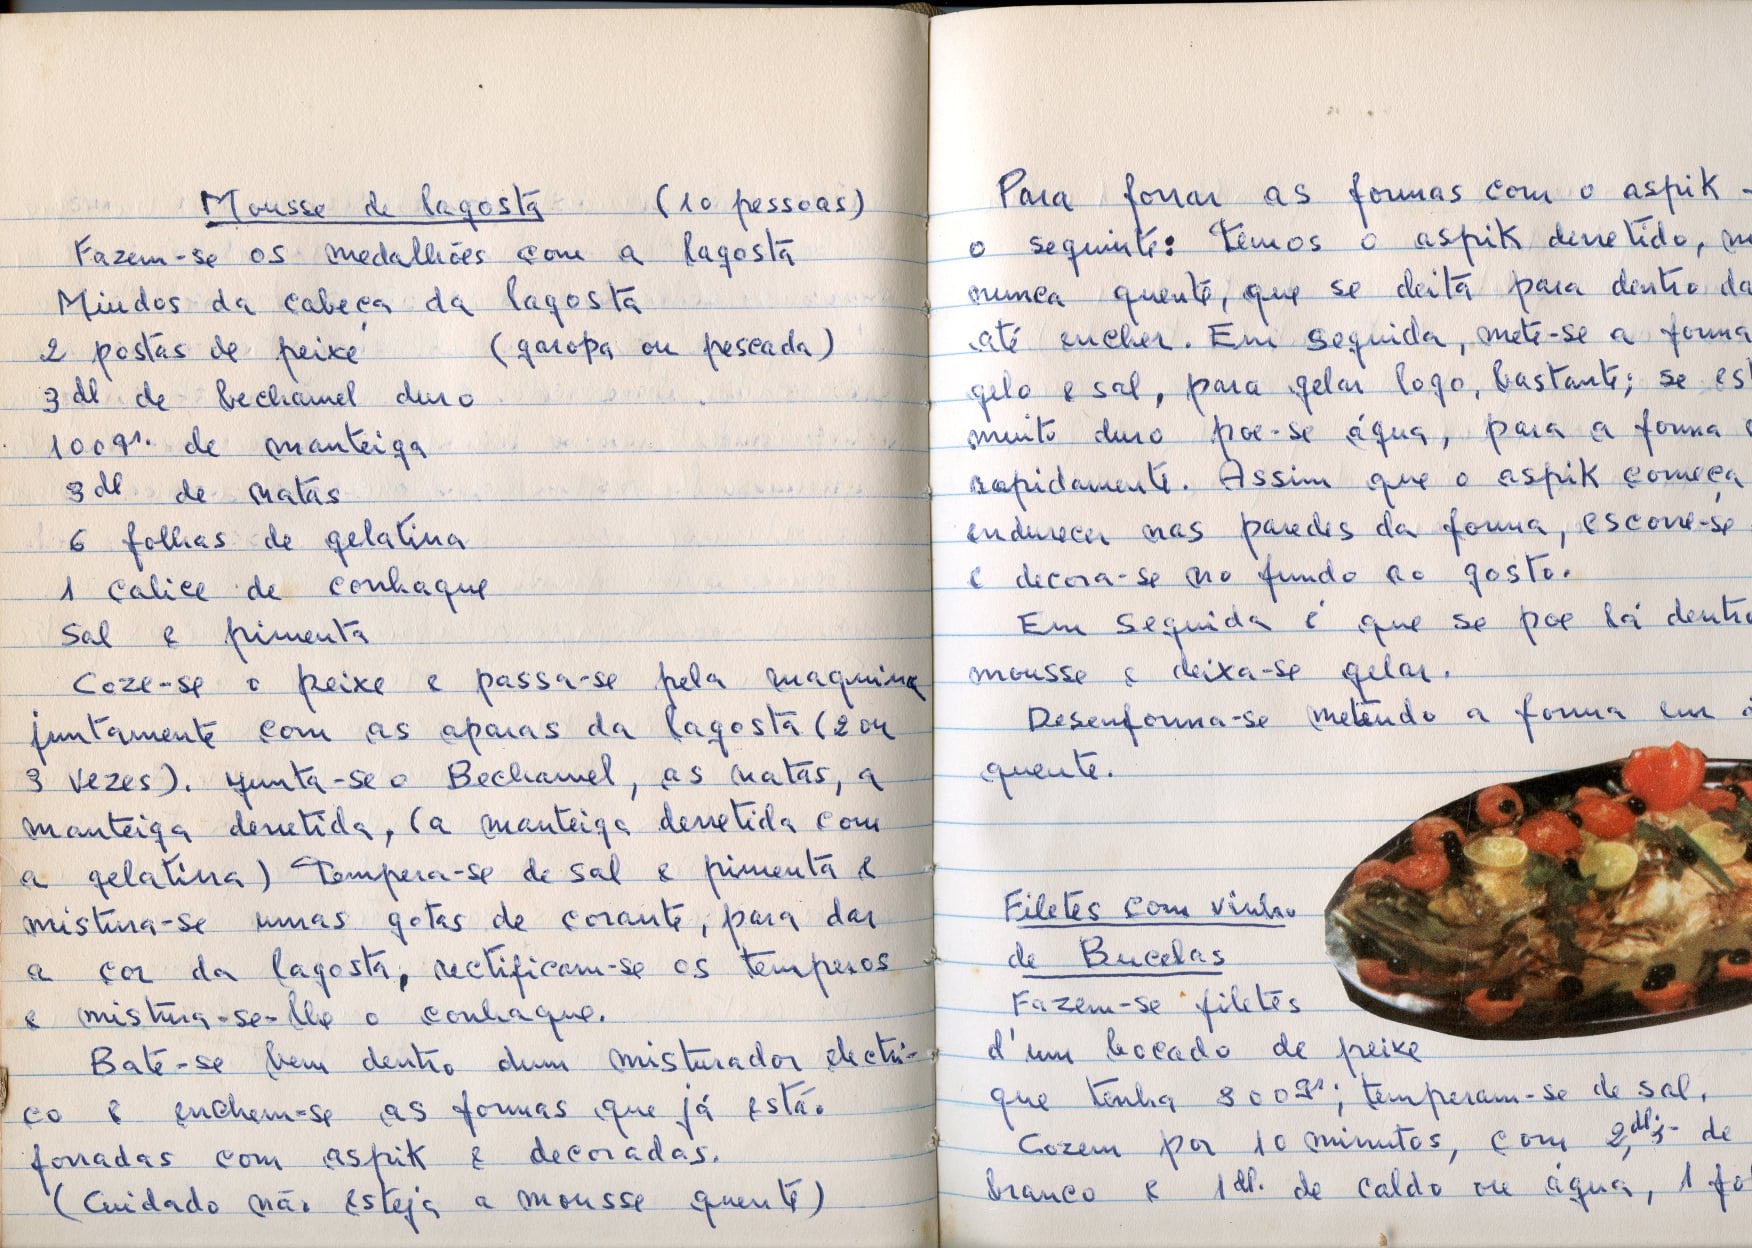 Mousse de lagosta (10 pessoas)
Fazem-se os medalhões com a lagosta
Miudos da cabeça da lagosta
2 postas de peixe (garopa ou pescada)
3 dl de bechamel duro
100 gr. de manteiga
3 dl de natas
6 folhas de gelatina
1 calice de conhaque
Sal e pimenta
Coze-se o peixe e passa-se pela maquina
juntamente com as aparas da lagosta (2 ou
3 vezes). Junta-se o Bechamel, as natas, a
manteiga derretida, (a manteiga derretida com
a gelatina) Tempera-se de sal e pimenta e
mistura-se umas gotas de corante, para dar
a cor da lagosta, rectificam-se os temperos
e mistura-se-lhe o conhaque.
Bate-se bem dentro dum misturador electri-
co e enchem-se as formas que já está.
forradas com aspik e decoradas.
(Cuidado não esteja a mousse quente)
Para forrar as formas com o aspik -
o seguinte: Temos o aspik derretido, m
nunca quente, que se deita para dentro da
até encher. Em seguida, mete-se a forma
gelo e sal, para gelar logo, bastante; se est
muito duro poe-se água, para a forma
rapidamente. Assim que o aspik começa
endurecer nas paredes da forma, escorre-se
e decora-se no fundo ao gosto.
Em seguida é que se poe lá dentro
mousse e deixa-se gelar.
Desenforma-se metendo a forma em
quente.
Filetes com vinho
de Bucelas
Fazem-se filetes
d'um bocado de peixe
que tenha 800 gr; temperam-se de sal.
Cozem por 10 minutos, com 2,dl5 de
branco e 1 dl. de caldo ou água, 1 fo